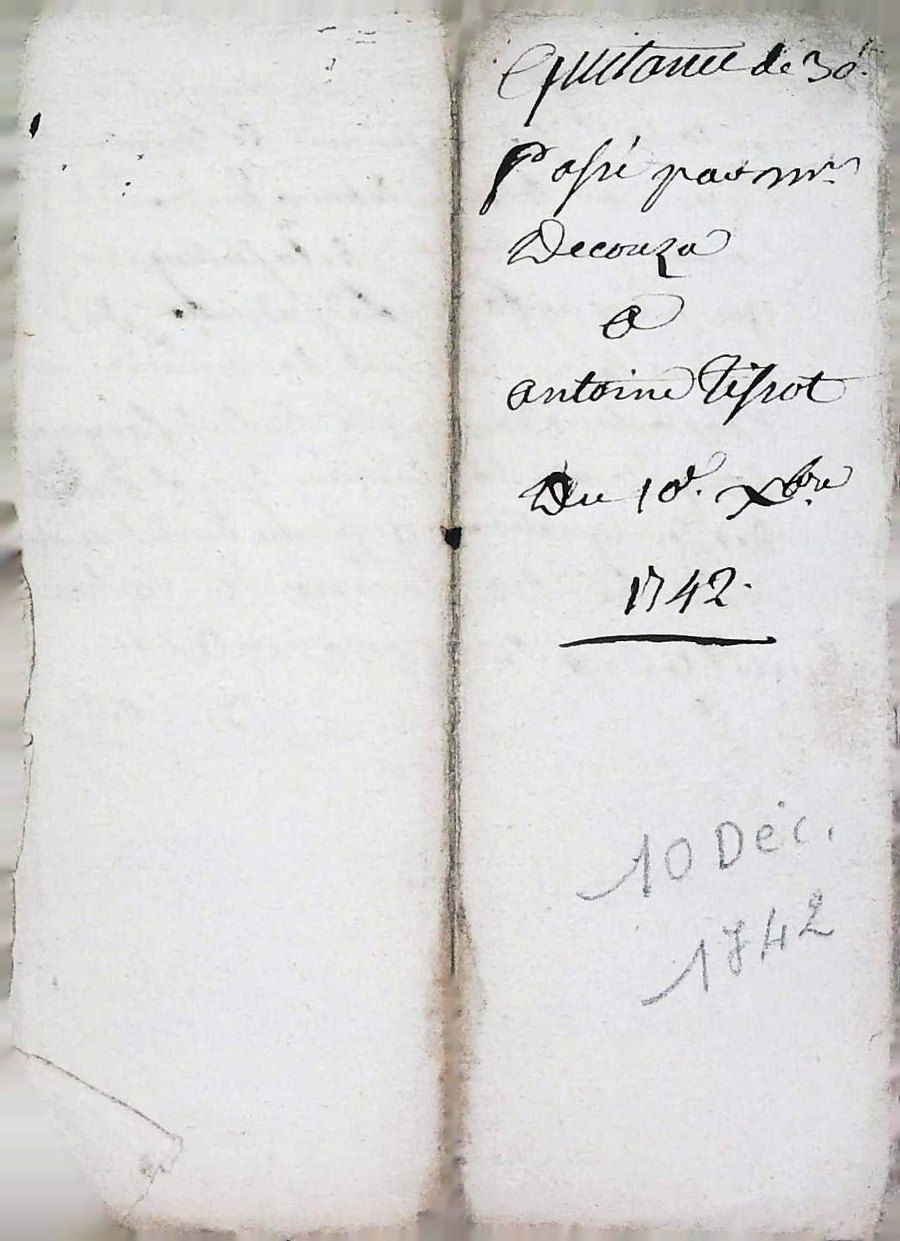 Quittance de 30#
Passé par mr.
Decouza
a
antoine Tissot
Du 10e. Xbre
1742.
10 Déc.
1742